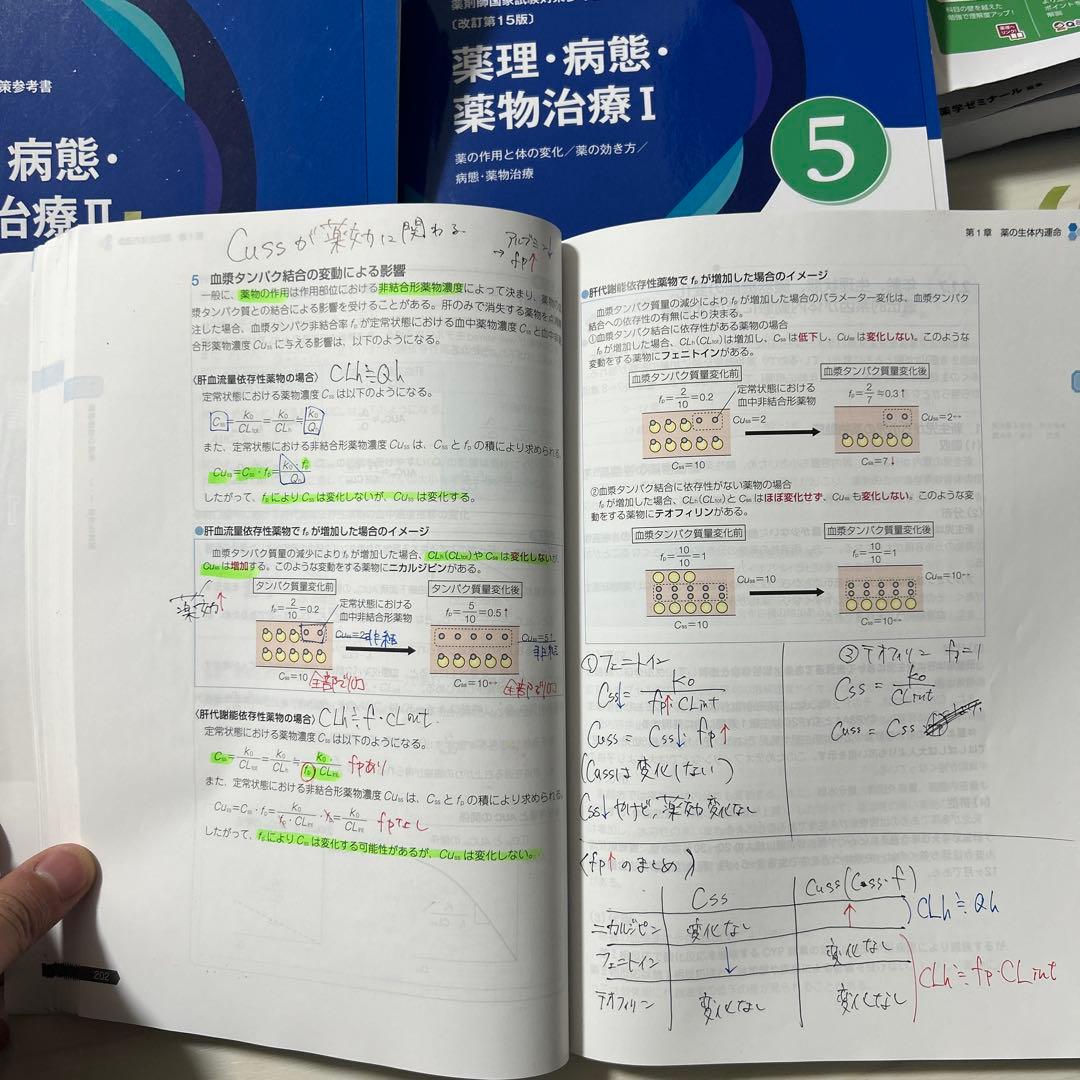 策参考書
病態・
治療Ⅱ
薬剤師国家試験対策参
〔改訂第15版〕
薬理・病態・
薬物治療Ⅰ
薬の作用と体の変化／薬の効き方／
病態・薬物治療
5
科目の壁を越えた
勉強で理解度アップ！
薬学ゼミナール
Cussが薬効に関わる
アルブミン↓
→fp↑
5 血漿タンパク結合の変動による影響
一般に、薬物の作用は作用部位における非結合形薬物濃度によって決まり、薬物の
漿タンパク質との結合による影響を受けることがある。肝のみで消失する薬物を点
注した場合、血漿タンパク非結合率fpが定常状態における血中薬物濃度Cssと血中非
合形薬物濃度Cussに与える影響は、以下のようになる。
〈肝血流量依存性薬物の場合〉 CLh≒Qh
定常状態における薬物濃度Cssは以下のようになる。
Css=k0/CLtot=k0/CLh≒k0/Qh
また、定常状態における非結合形薬物濃度Cussは、Cssとfpの積により求められる。
Cuss=Css・fp=k0・fp/Qh
したがって、fpによりCssは変化しないが、Cussは変化する。
●肝血流量依存性薬物でfpが増加した場合のイメージ
血漿タンパク質量の減少によりfpが増加した場合、CLh(CLtot)やCssは変化しないが、
Cussは増加する。このような変動をする薬物にニカルジピンがある。
薬効↑
タンパク質量変化前
定常状態における
血中非結合形薬物
タンパク質量変化後
fp=2/10=0.2
fp=5/10=0.5↑
Cuss=2 非結
Cuss=5↑
非結
Css=10 全部で10コ
Css=10↔ 全部で10コ
〈肝代謝能依存性薬物の場合〉 CLh≒f・CLint.
定常状態における薬物濃度Cssは以下のようになる。
Css=k0/CLtot=k0/CLh≒k0/fp・CLint fpあり
また、定常状態における非結合形薬物濃度Cussは、Cssとfpの積により求められる。
Cuss=Css・fp=k0/fp・CLint・fp=k0/CLint fpなし
したがって、fpによりCssは変化する可能性があるが、Cussは変化しない。
202
第1章 薬の生体内運命
●肝代謝能依存性薬物でfpが増加した場合のイメージ
血漿タンパク質量の減少によりfpが増加した場合のパラメーター変化は、血漿タンパク
結合への依存性の有無により決まる。
①血漿タンパク結合に依存性がある薬物の場合
fpが増加した場合、CLh(CLtot)は増加し、Cssは低下し、Cussは変化しない。このような
変動をする薬物にフェニトインがある。
血漿タンパク質量変化前
血漿タンパク質量変化後
fp=2/10=0.2
定常状態における
血中非結合形薬物
fp=2/7≒0.3↑
Cuss=2
Cuss=2↔
Css=10
Css=7↓
②血漿タンパク結合に依存性がない薬物の場合
fpが増加した場合、CLh(CLtot)とCssはほぼ変化せず、Cussも変化しない。このような変
動をする薬物にテオフィリンがある。
血漿タンパク質量変化前
血漿タンパク質量変化後
fp=10/10=1
fp=10/10=1
Cuss=10
Cuss=10↔
Css=10
Css=10↔
①フェニトイン
Css↓=k0/fp↑CLint
Cuss=Css↓・fp↑
(Cussは変化しない)
Css↓やけど、薬効変化なし
③テオフィリン fp=1
Css=k0/CLint
Cuss=Css
〈fp↑のまとめ〉
Css
Cuss(Css・f)
ニカルジピン 変化なし ↑
CLh≒Qh
フェニトイン ↓ 変化なし
テオフィリン 変化なし 変化なし
CLh≒fp・CLint